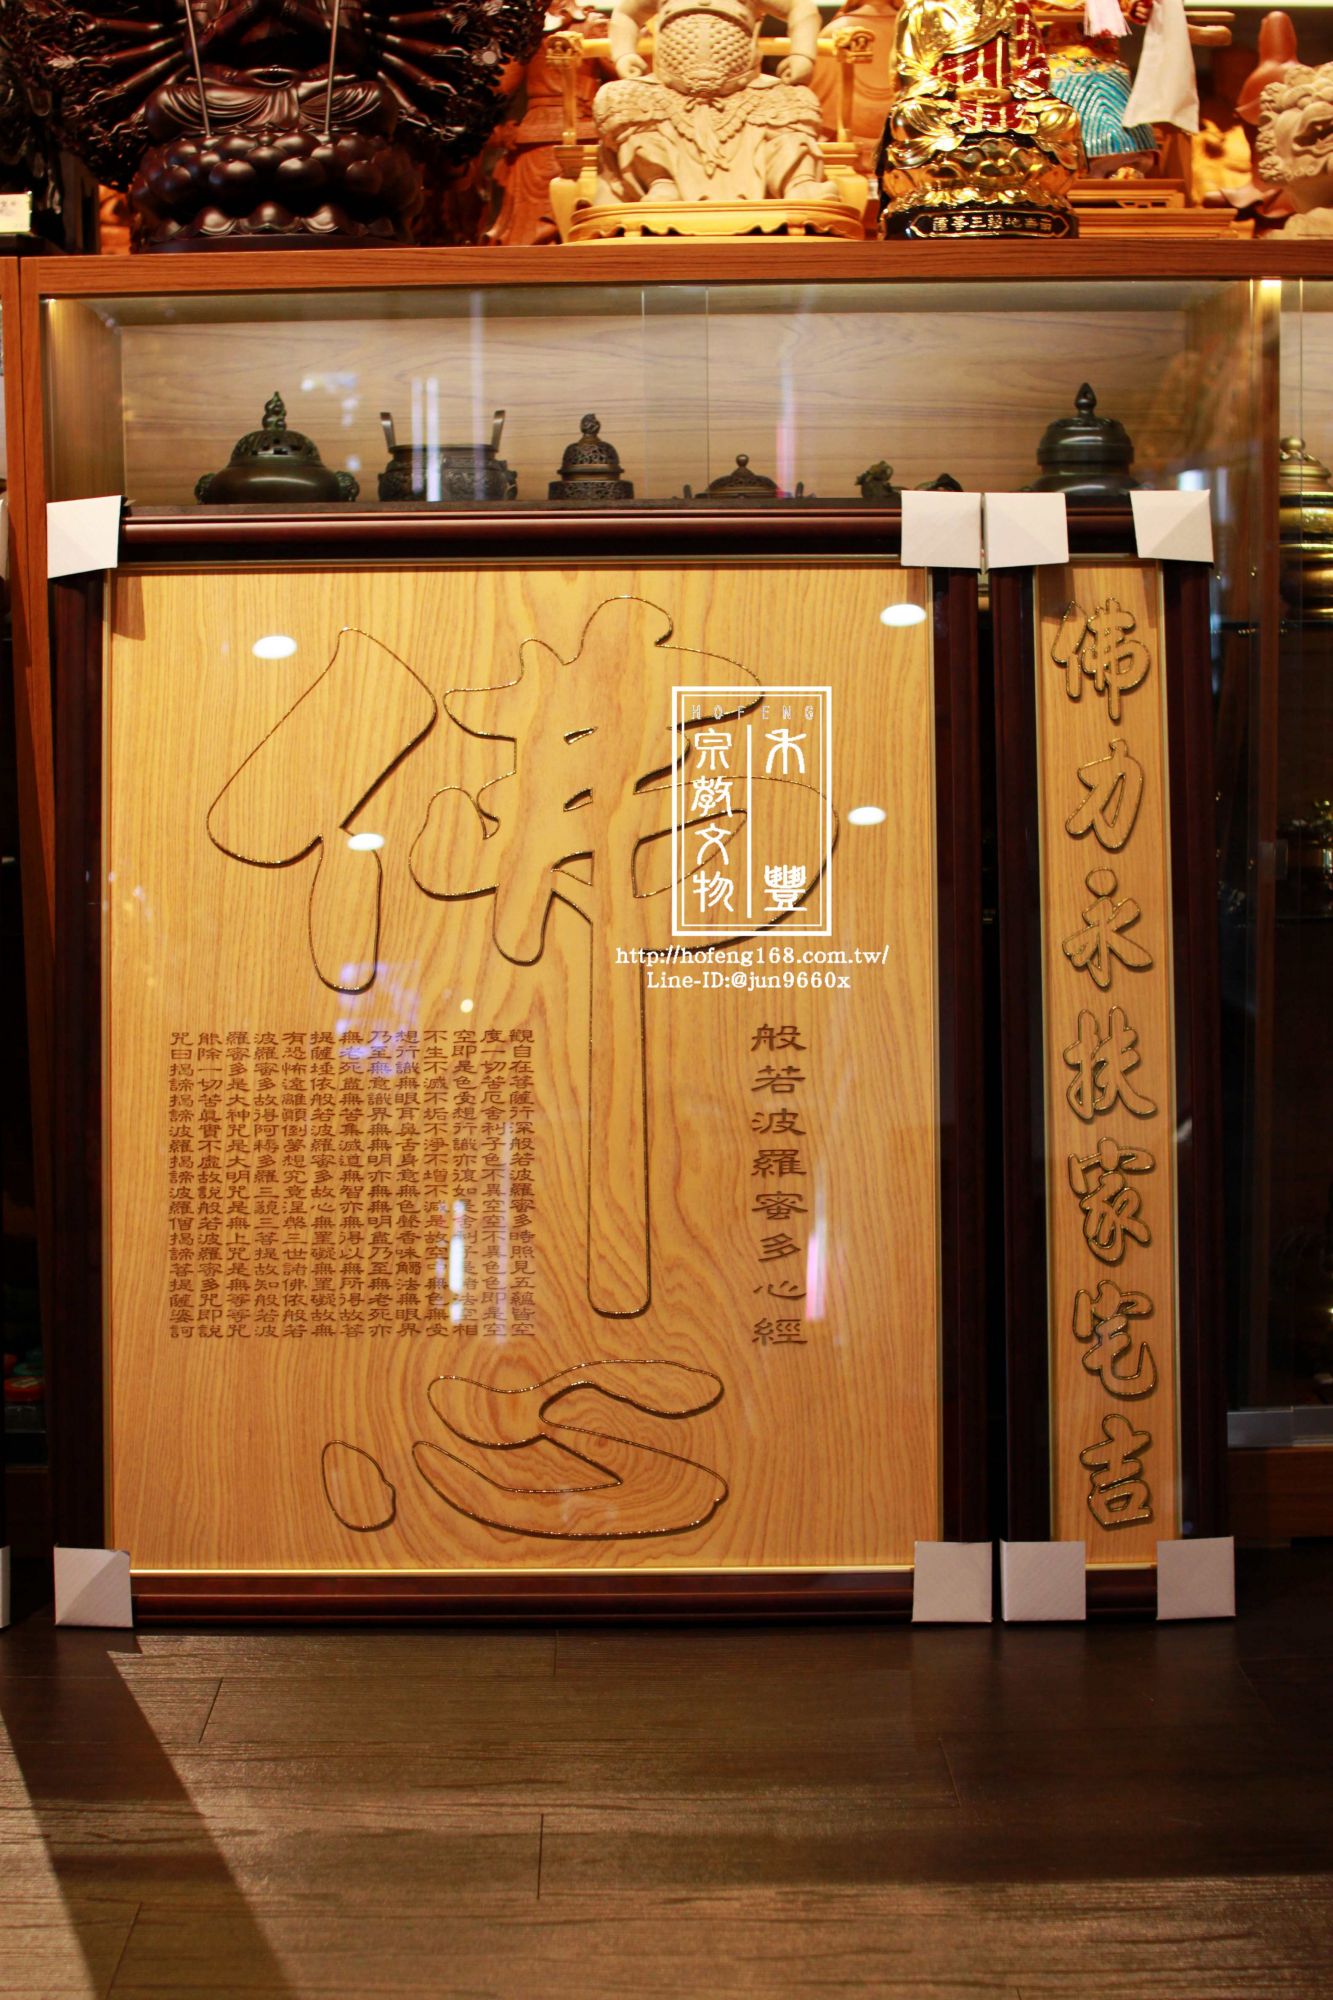 佛心
般若波羅蜜多心經
觀自在菩薩行深般若波羅蜜多時照見五蘊皆空
度一切苦厄舍利子色不異空空不異色色即是空
空即是色受想行識亦復如是舍利子是諸法空相
不生不滅不垢不淨不增不減是故空中無色無受
想行識無眼耳鼻舌身意無色聲香味觸法無眼界
乃至無意識界無無明亦無無明盡乃至無老死亦
無老死盡無苦集滅道無智亦無得以無所得故菩
提薩埵依般若波羅蜜多故心無罣礙無罣礙故無
有恐怖遠離顛倒夢想究竟涅槃三世諸佛依般若
波羅蜜多故得阿耨多羅三藐三菩提故知般若波
羅蜜多是大神咒是大明咒是無上咒是無等等咒
能除一切苦真實不虛故說般若波羅蜜多咒即說
咒曰揭諦揭諦波羅揭諦波羅僧揭諦菩提薩婆訶
佛力永扶家宅吉
HOFENG
禾豐
宗教文物
http://hofeng168.com.tw/
Line-ID:@jun9660x